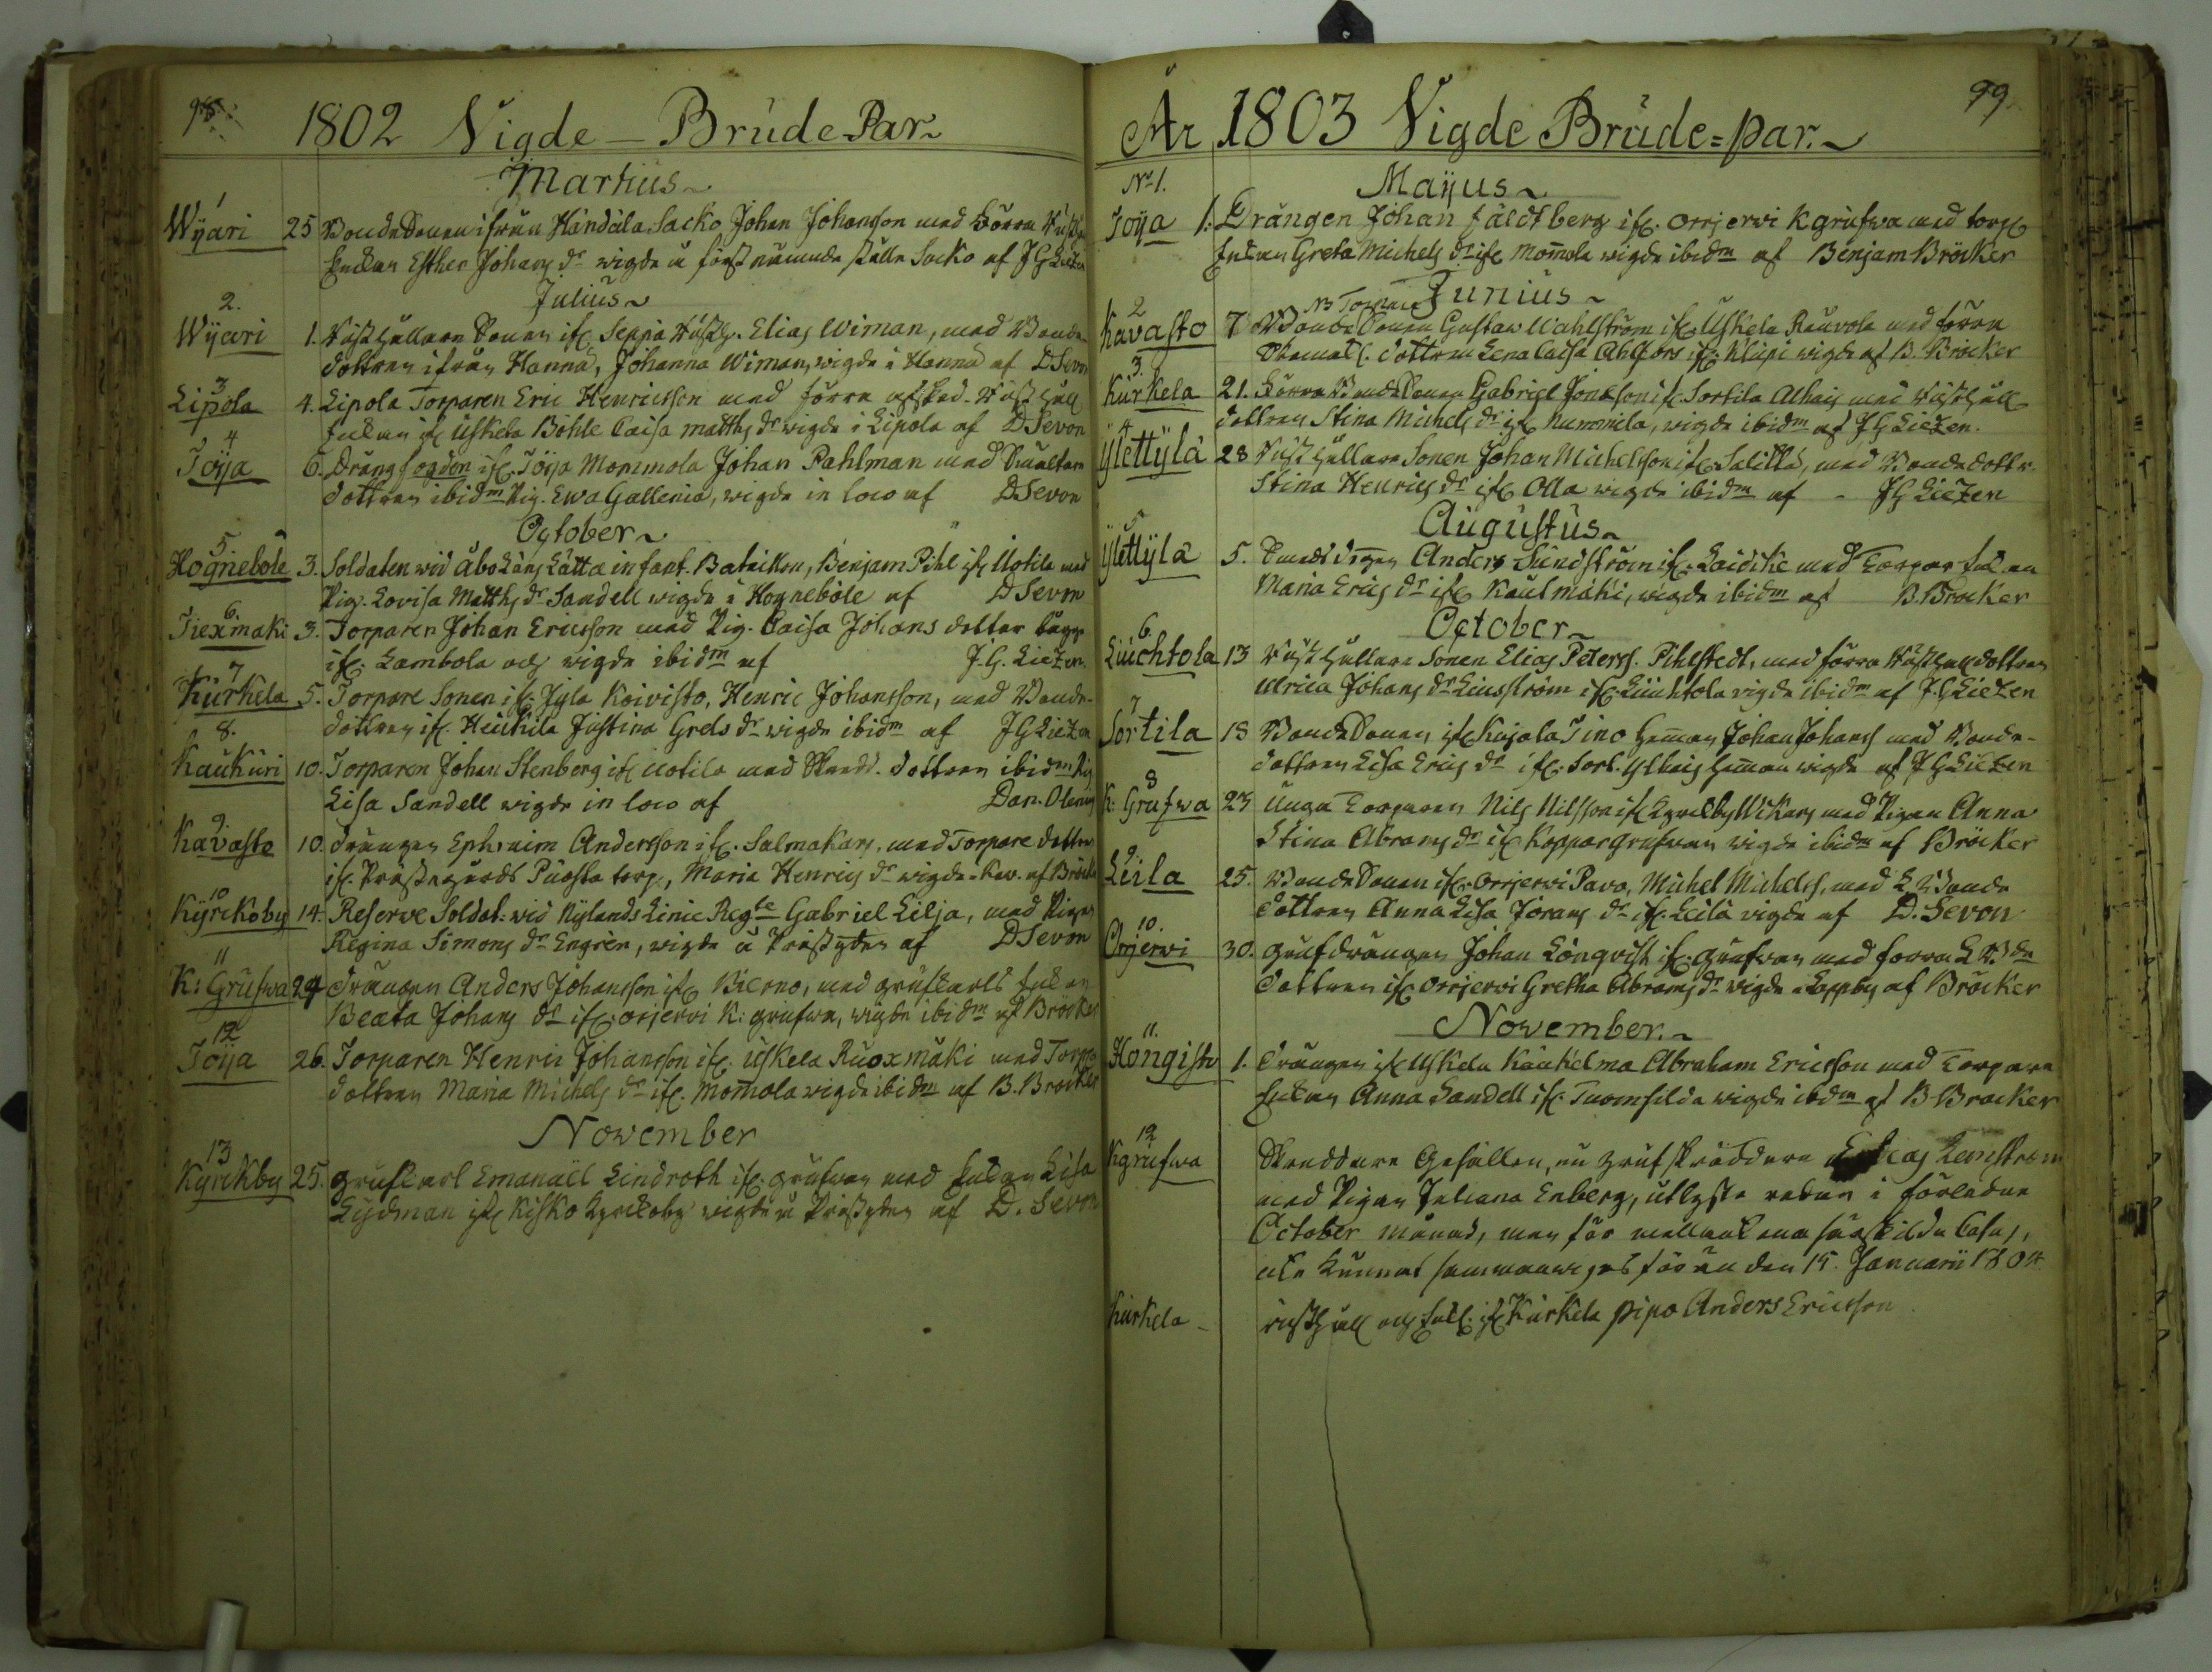 98
1802 Vigde - Brude Par
Martius
1
Wÿari 25 Bonde Sonen ifrån Håndåla Sacko Johan Johansson med förra
Enkan Esther Johans dr wigde å först nämnde ställe Sacko af J G Liezen
Julius
2.
Wÿari 1. Rusthållare Sonen ifr. Seppä Elias Wiman, med Bonde
dottren ifrån Hanna, Johanna Wiman, wigde i Hanna af D Sevon
3
Lipola 4. Lipola Torparen Eric Henricsson med förra Rusthåll
Enkan ifr Uskela Böhle Caisa Matths dr wigde i Lipola af D Sevon
4
Töÿa 6. Drängfogden ifr. Töÿa Mommola Johan Pahlman med
dottren ibidm Pig. Ewa Gallenia, wigde in loco af D Sevon
October
5
Hognebole 3. Soldaten wid Åbo Läns Lätta infant. Bataillon, Benjam Pihl ifr Uotila med
Pig. Lovisa Matths dr Sandell wigde i Hognebole af D Sevon
6.
Tiexmaki 3. Torparen Johan Ericsson med Pig. Caisa Johans dotter
ifr. Lambola och wigde ibidm af J. G. Liezen
7
Kurkela 5. Torpare Sonen ifr. Jÿla Koivisto, Henric Johansson, med Bonde
dottren ifr. Heickila Justina Grels dr wigde ibidm af J G Liezen
8.
Kaukuri 10. Torparen Johan Stenberg ifr Uotila med dottren ibidm Pig
Lisa Sandell wigde in loco af Dan. Olenius
9
Kavasto 10. Drängen Ephraim Andersson ifr. Salmakars, med Torpare dottren
ifr. Prästegårds Puosta torp, Maria Henrics dr wigde i Kav. af Bröcker
10
Kÿrckoby 14. Reserve Soldat. wid Nÿlands Linie Regte Gabriel Lilja, med Pigan
Regina Simons dr Engren, wigde å Prästgden af D Sevon
11
K: Grufwa 24 Drängen Anders Johansson ifr Bierno, med grufkarls Enkan
Beata Johans dr ifr. Orjervi K: grufwa, wigde ibidm af Bröcker
12
Töÿa 26. Torparen Henric Johansson ifr. Uskela Ruoxmäki med Torpare
dottren Maria Michels dr ifr. Mommola wigde ibidm af B. Bröcker
November
13
Kyrckby 25. grufkarl Emanuel Lindroth ifr. grufwan med Enkan Lisa
Lÿdman ifr Kisko Kyrckoby wigde å Prästgden af D. Sevon
99
År 1803 Vigde Brude=par.
No 1. Maÿus
Töÿa 1. Drängen Johan Fäldtberg ifr. Orrjerwi K grufwa med torp
Enkan Greta Michels dr ifr Mommola wigde ibidm af Benjam Bröcker
Junius
2
Kavasto 7 Bonde Sonen Gustaw Wahlström ifr Uskela Rauvola med förra
dottren Lena Caisa Ahlfors ifr. Klupi wigde af B. Bröcker
3.
Kurkela 21. Förra Bonde Sonen Gabriel Jonasson ifr Sortila Alhais med Rusthåll
dottren Stina Michels dr ifr Nummila, wigde ibidm af J G Liezen.
4
Ylettÿlä 28 Rusthållare Sonen Johan Michelsson ifr Salitta, med Bonde dottr.
Stina Henrics dr ifr Olla wigde ibidm af J G Liezen
Augustus
5
Ylettÿla 5. Anders Sundström ifr. Laidike med Torpar Enkan
Maria Erics dr ifr Kaulmäki, wigde ibidm af B. Bröcker
October
6
Luuchtola 13 Rusthållare Sonen Elias Peterss. Pihlstedt, med förra Rusthåll dottren
Ulrica Johans dr Liusström ifr. Luuhtola wigde ibidm af J. G Liezen
7
Sortila 18 Bonde Sonen ifr Kajala Tino hemman Johan Johanss med Bonde-
dottren Lisa Erics dr ifr. Sort. Ylhais hemman wigde af J G Liezen
8
K: Grufwa 23 Unga Torparen Nils Nilsson ifr Wikars med Pigan Anna
Stina Abrams dr ifr Koppargrufwan wigde ibidm af Bröcker
9
Leila 25. Bonde Sonen ifr. Orrjerwi Pavo, Michel Michelss, med L Bonde
dottren Anna Lisa Jörans dr ifr. Leilä wigde af D. Sevon
10.
Orrjerwi 30. grufdrängen Johan Lönqvist ifr. grufwan med förra L Bde
dottren ifr Orrjerwi Gretha Abrams dr wigde i Lappby af Bröcker
November.
11.
Kongisto 1. Drängen ifr Uskela Kaukelma Abraham Ericsson med Torpare
Enkan Anna Sandell ifr. Tuomsilda wigde ibidm af B Bröcker
12
K grufwa Skräddare Gesällen, nu grufskräddare Lemström
med Pigan Juliana Enberg, utlyste redan i förledne
October månad, men för mellankomne särskilde Casus,
icke kunnat sammanwigas förän den 15. Januarii 1804
Kurkela - rusthåll och ifr Kurkela Pipo Anders Ericsson